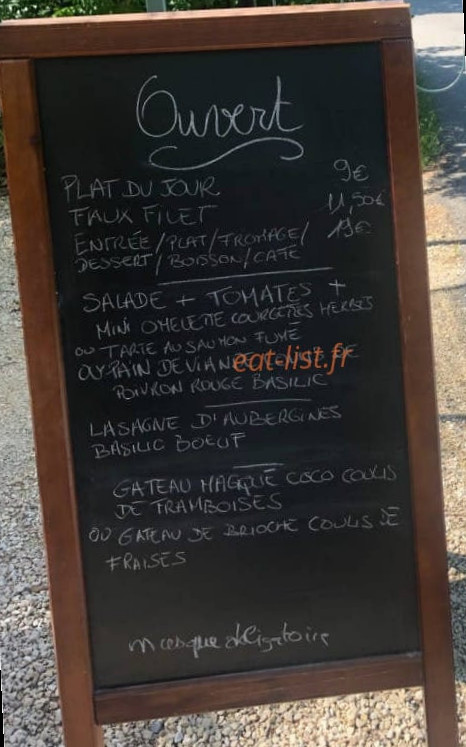 Ouvert
PLAT DU JOUR 9€
FAUX FILET 11,50€
ENTRÉE/PLAT/FROMAGE/ 19€
DESSERT/BOISSON/CAFE
SALADE + TOMATES +
MINI OMELETTE COURGETTES HERBES
OU TARTE AU SAUMON FUMÉ
OU PAIN DE VIANDE DE
eat-list.fr
POIVRON ROUGE BASILIC
LASAGNE D'AUBERGINES
BASILIC BOEUF
GATEAU MAGIQUE COCO COULIS
DE FRAMBOISES
OU GATEAU DE BRIOCHE COULIS DE
FRAISES
masque obligatoire